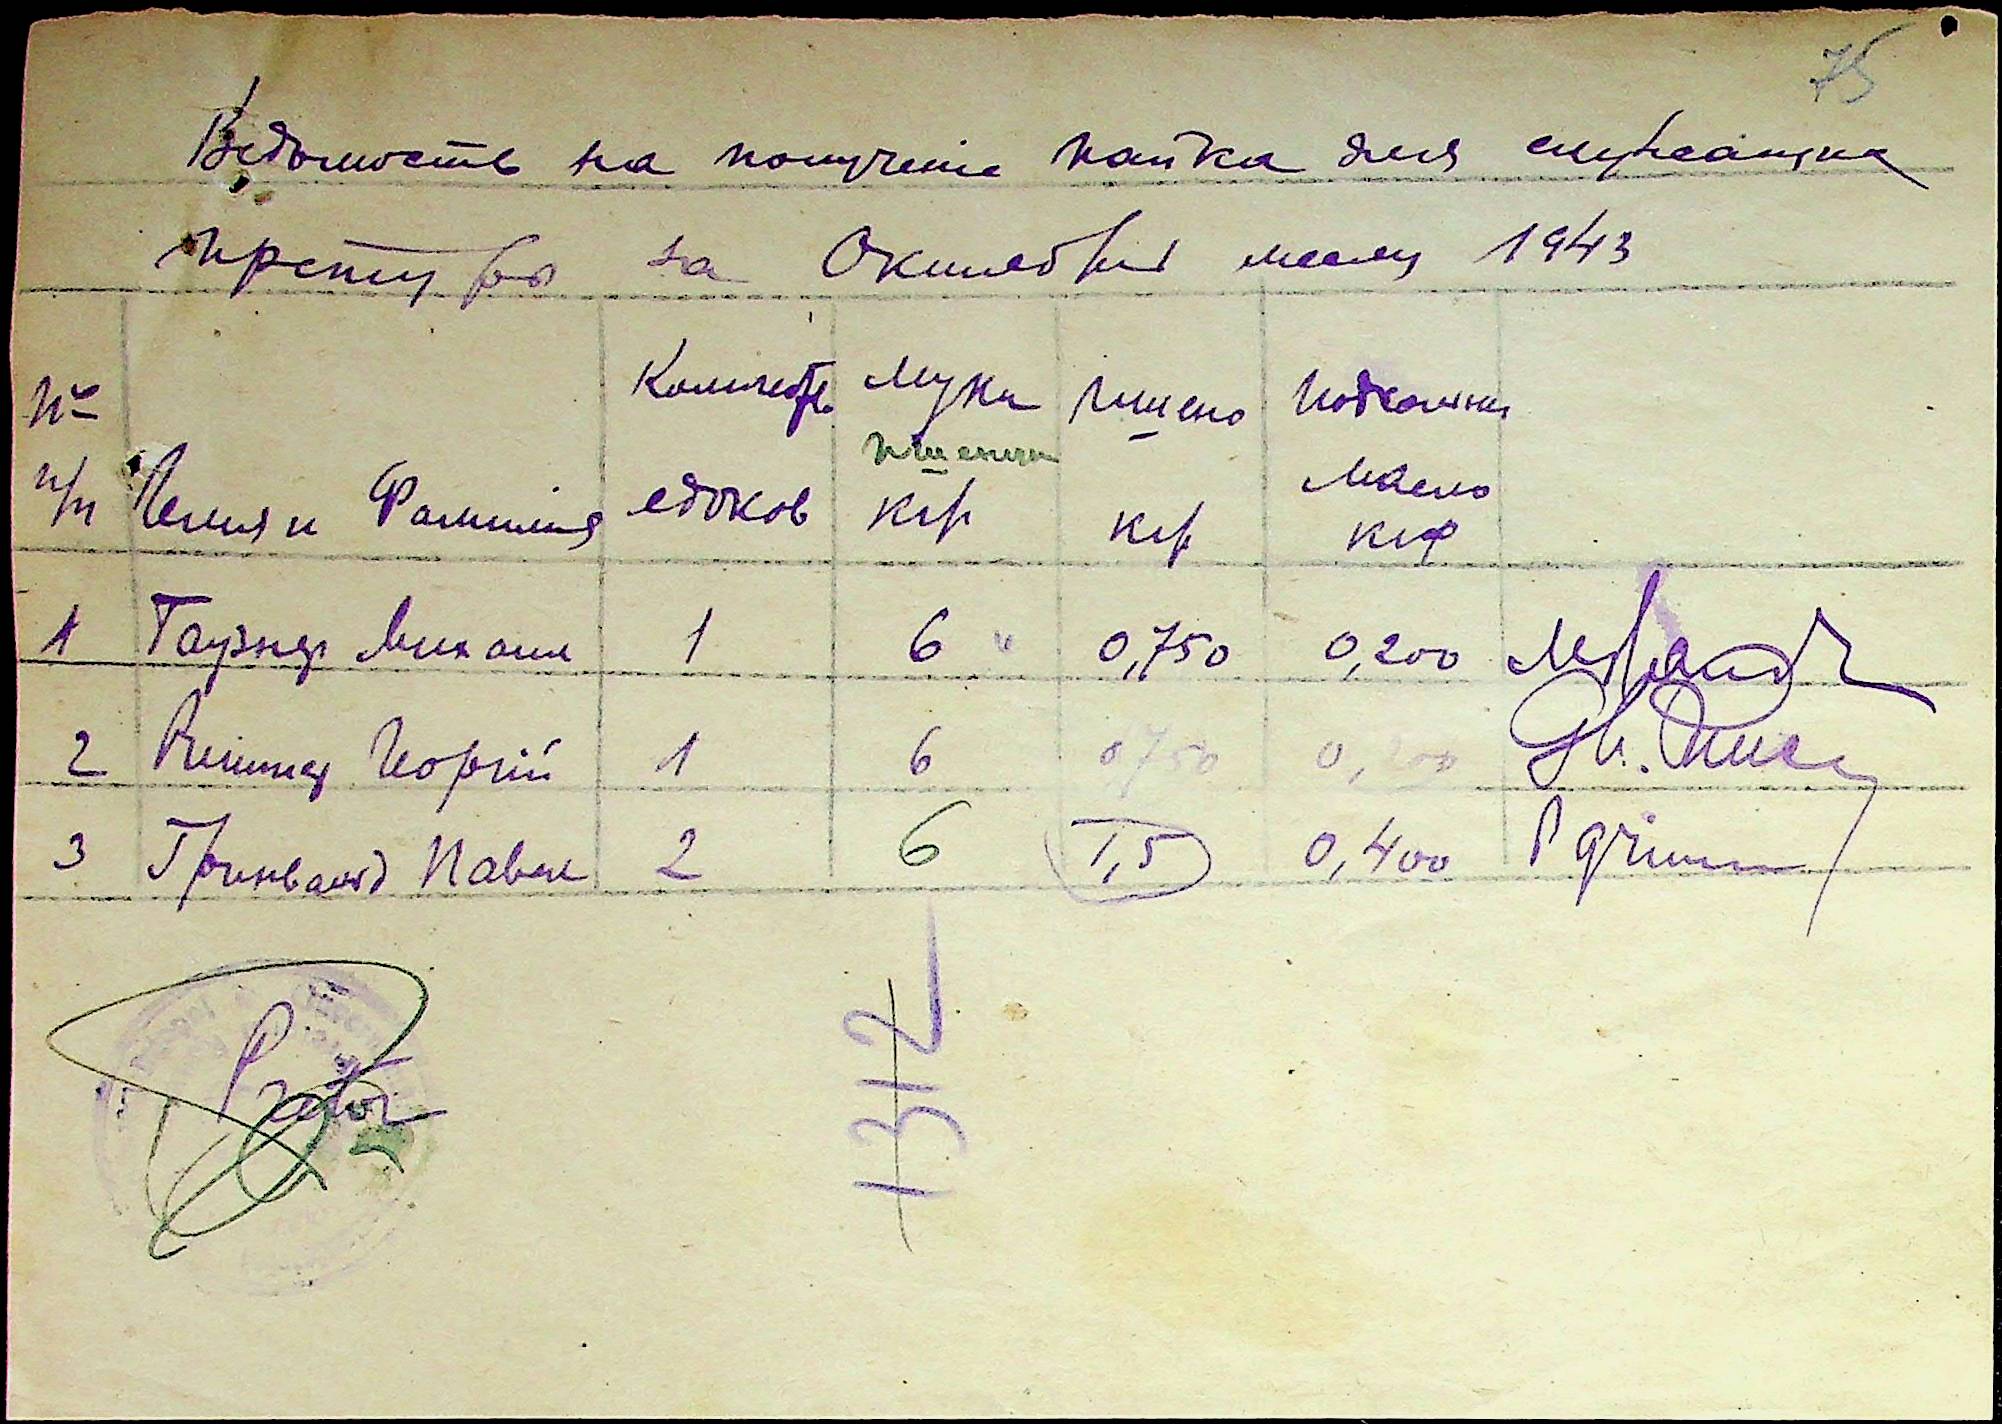 75
Ведомость на получение пайка для служащих
претуры за Октябрь месяц 1943
№ п/п Имя и Фамилия Количество едоков Мука пшенич кгр пшено кгр Подсолнеч масло кгр
1 Гаузнер Михаил 1 6 " 0,750 0,200
2 Георгий 1 6 0,750 0,200
3 Гринвальд Павел 2 6 1,5 0,400
Pretor
1312